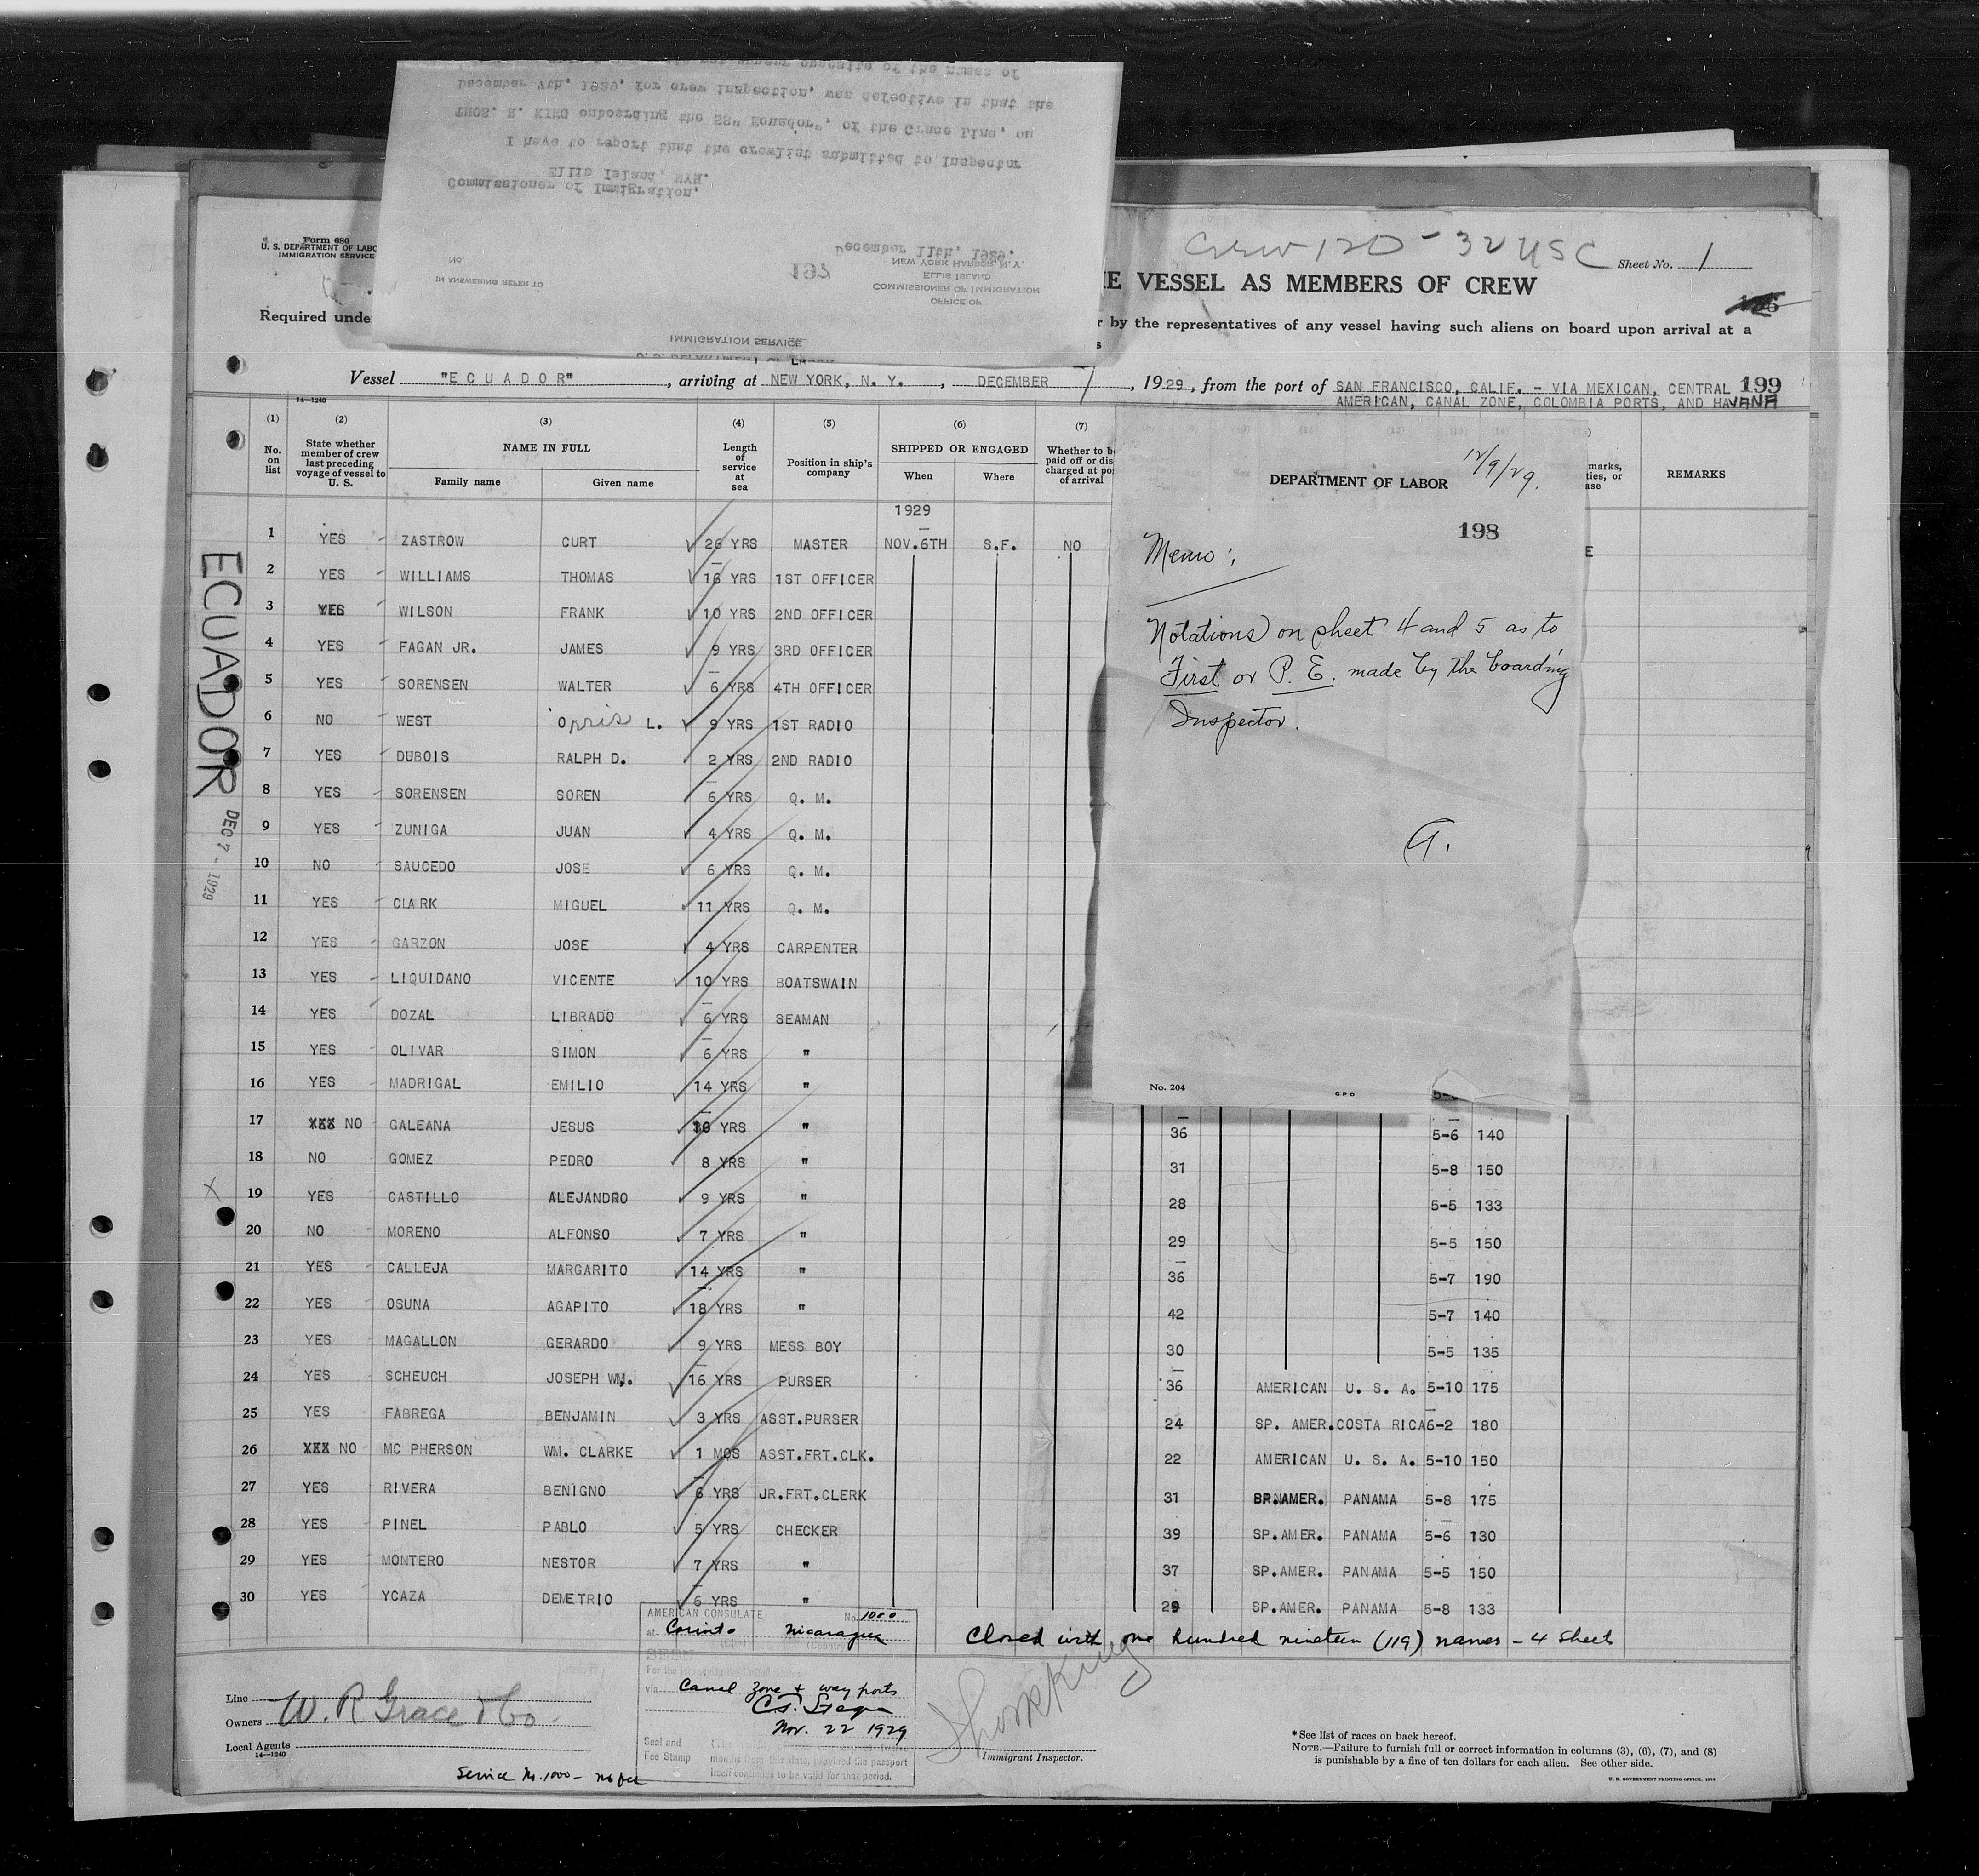 December 7th, 1929, for crew inspection, was defective in that the
THOS. R. KING onboarding the SS" Ecuador", of the Grace Line, on
I have to report that the crewlist submitted to Inspector
Ellis Island, NYH.
Commissioner of Immigration,
December 11th, 1929.
No.
197
NEW YORK HARBOR, N.Y.
ELLIS ISLAND
IN ANSWERING REFER TO
COMMISSIONER OF IMMIGRATION
OFFICE OF
IMMIGRATION SERVICE
Form 680
U. S. DEPARTMENT OF LABO
IMMIGRATION SERVICE
Crew 120 - 32 USC
Sheet No. 1
E VESSEL AS MEMBERS OF CREW
Required unde
r by the representatives of any vessel having such aliens on board upon arrival at a
Vessel "ECUADOR", arriving at NEW YORK, N. Y., DECEMBER 7, 1929, from the port of SAN FRANCISCO, CALIF. - VIA MEXICAN, CENTRAL 199
AMERICAN, CANAL ZONE, COLOMBIA PORTS, AND HAVANA
14-1240
(1) (2) (3) (4) (5) (6) (7)
No. on list
State whether member of crew last preceding voyage of vessel to U. S.
NAME IN FULL
Family name Given name
Length of service at sea
Position in ship's company
SHIPPED OR ENGAGED
When Where
Whether to be paid off or dis charged at po of arrival
marks, ties, or ase
REMARKS
1929
1 YES ZASTROW CURT 26 YRS MASTER NOV.6TH S.F. NO
2 YES WILLIAMS THOMAS 16 YRS 1ST OFFICER
3 YES WILSON FRANK 10 YRS 2ND OFFICER
4 YES FAGAN JR. JAMES 9 YRS 3RD OFFICER
5 YES SORENSEN WALTER 6 YRS 4TH OFFICER
6 NO WEST Opris L. 9 YRS 1ST RADIO
7 YES DUBOIS RALPH D. 2 YRS 2ND RADIO
8 YES SORENSEN SOREN 6 YRS Q. M.
9 YES ZUNIGA JUAN 4 YRS Q. M.
10 NO SAUCEDO JOSE 6 YRS Q. M.
11 YES CLARK MIGUEL 11 YRS Q. M.
12 YES GARZON JOSE 4 YRS CARPENTER
13 YES LIQUIDANO VICENTE 10 YRS BOATSWAIN
14 YES DOZAL LIBRADO 6 YRS SEAMAN
15 YES OLIVAR SIMON 6 YRS "
16 YES MADRIGAL EMILIO 14 YRS "
17 XXX NO GALEANA JESUS YRS " 36 5-6 140
18 NO GOMEZ PEDRO 8 YRS " 31 5-8 150
19 YES CASTILLO ALEJANDRO 9 YRS " 28 5-5 133
20 NO MORENO ALFONSO 7 YRS " 29 5-5 150
21 YES CALLEJA MARGARITO 14 YRS " 36 5-7 190
22 YES OSUNA AGAPITO 18 YRS " 42 5-7 140
23 YES MAGALLON GERARDO 9 YRS MESS BOY 30 5-5 135
24 YES SCHEUCH JOSEPH WM. 16 YRS PURSER 36 AMERICAN U. S. A. 5-10 175
25 YES FABREGA BENJAMIN 3 YRS ASST.PURSER 24 SP. AMER. COSTA RICA 6-2 180
26 XXX NO MC PHERSON WM. CLARKE 1 MOS ASST.FRT.CLK. 22 AMERICAN U. S. A. 5-10 150
27 YES RIVERA BENIGNO 6 YRS JR.FRT.CLERK 31 SP.AMER. PANAMA 5-8 175
28 YES PINEL PABLO 5 YRS CHECKER 39 SP.AMER. PANAMA 5-6 130
29 YES MONTERO NESTOR 7 YRS " 37 SP.AMER. PANAMA 5-5 150
30 YES YCAZA DEMETRIO 6 YRS " 29 SP.AMER. PANAMA 5-8 133
ECUADOR
DEC 7 - 1929
DEPARTMENT OF LABOR
12/9/29.
198
Memo:
Notations on sheet 4 and 5 as to
First or P. E. made by the boarding
Inspector.
No. 204
GPO
AMERICAN CONSULATE No. 1000
at Corinto Nicaragua
SEEN
via Canal Zone & way ports
Nov. 22 1929
Seal and
Fee Stamp
months from this date, provided the passport
itself continues to be valid for that period.
Closed with one hundred nineteen (119) names - 4 Sheets
Line
Owners W. R. Grace & Co.
Local Agents
14-1240
Service No. 1000 - no fee
Thos R King
Immigrant Inspector.
*See list of races on back hereof.
NOTE.—Failure to furnish full or correct information in columns (3), (6), (7), and (8)
is punishable by a fine of ten dollars for each alien. See other side.
U. S. GOVERNMENT PRINTING OFFICE